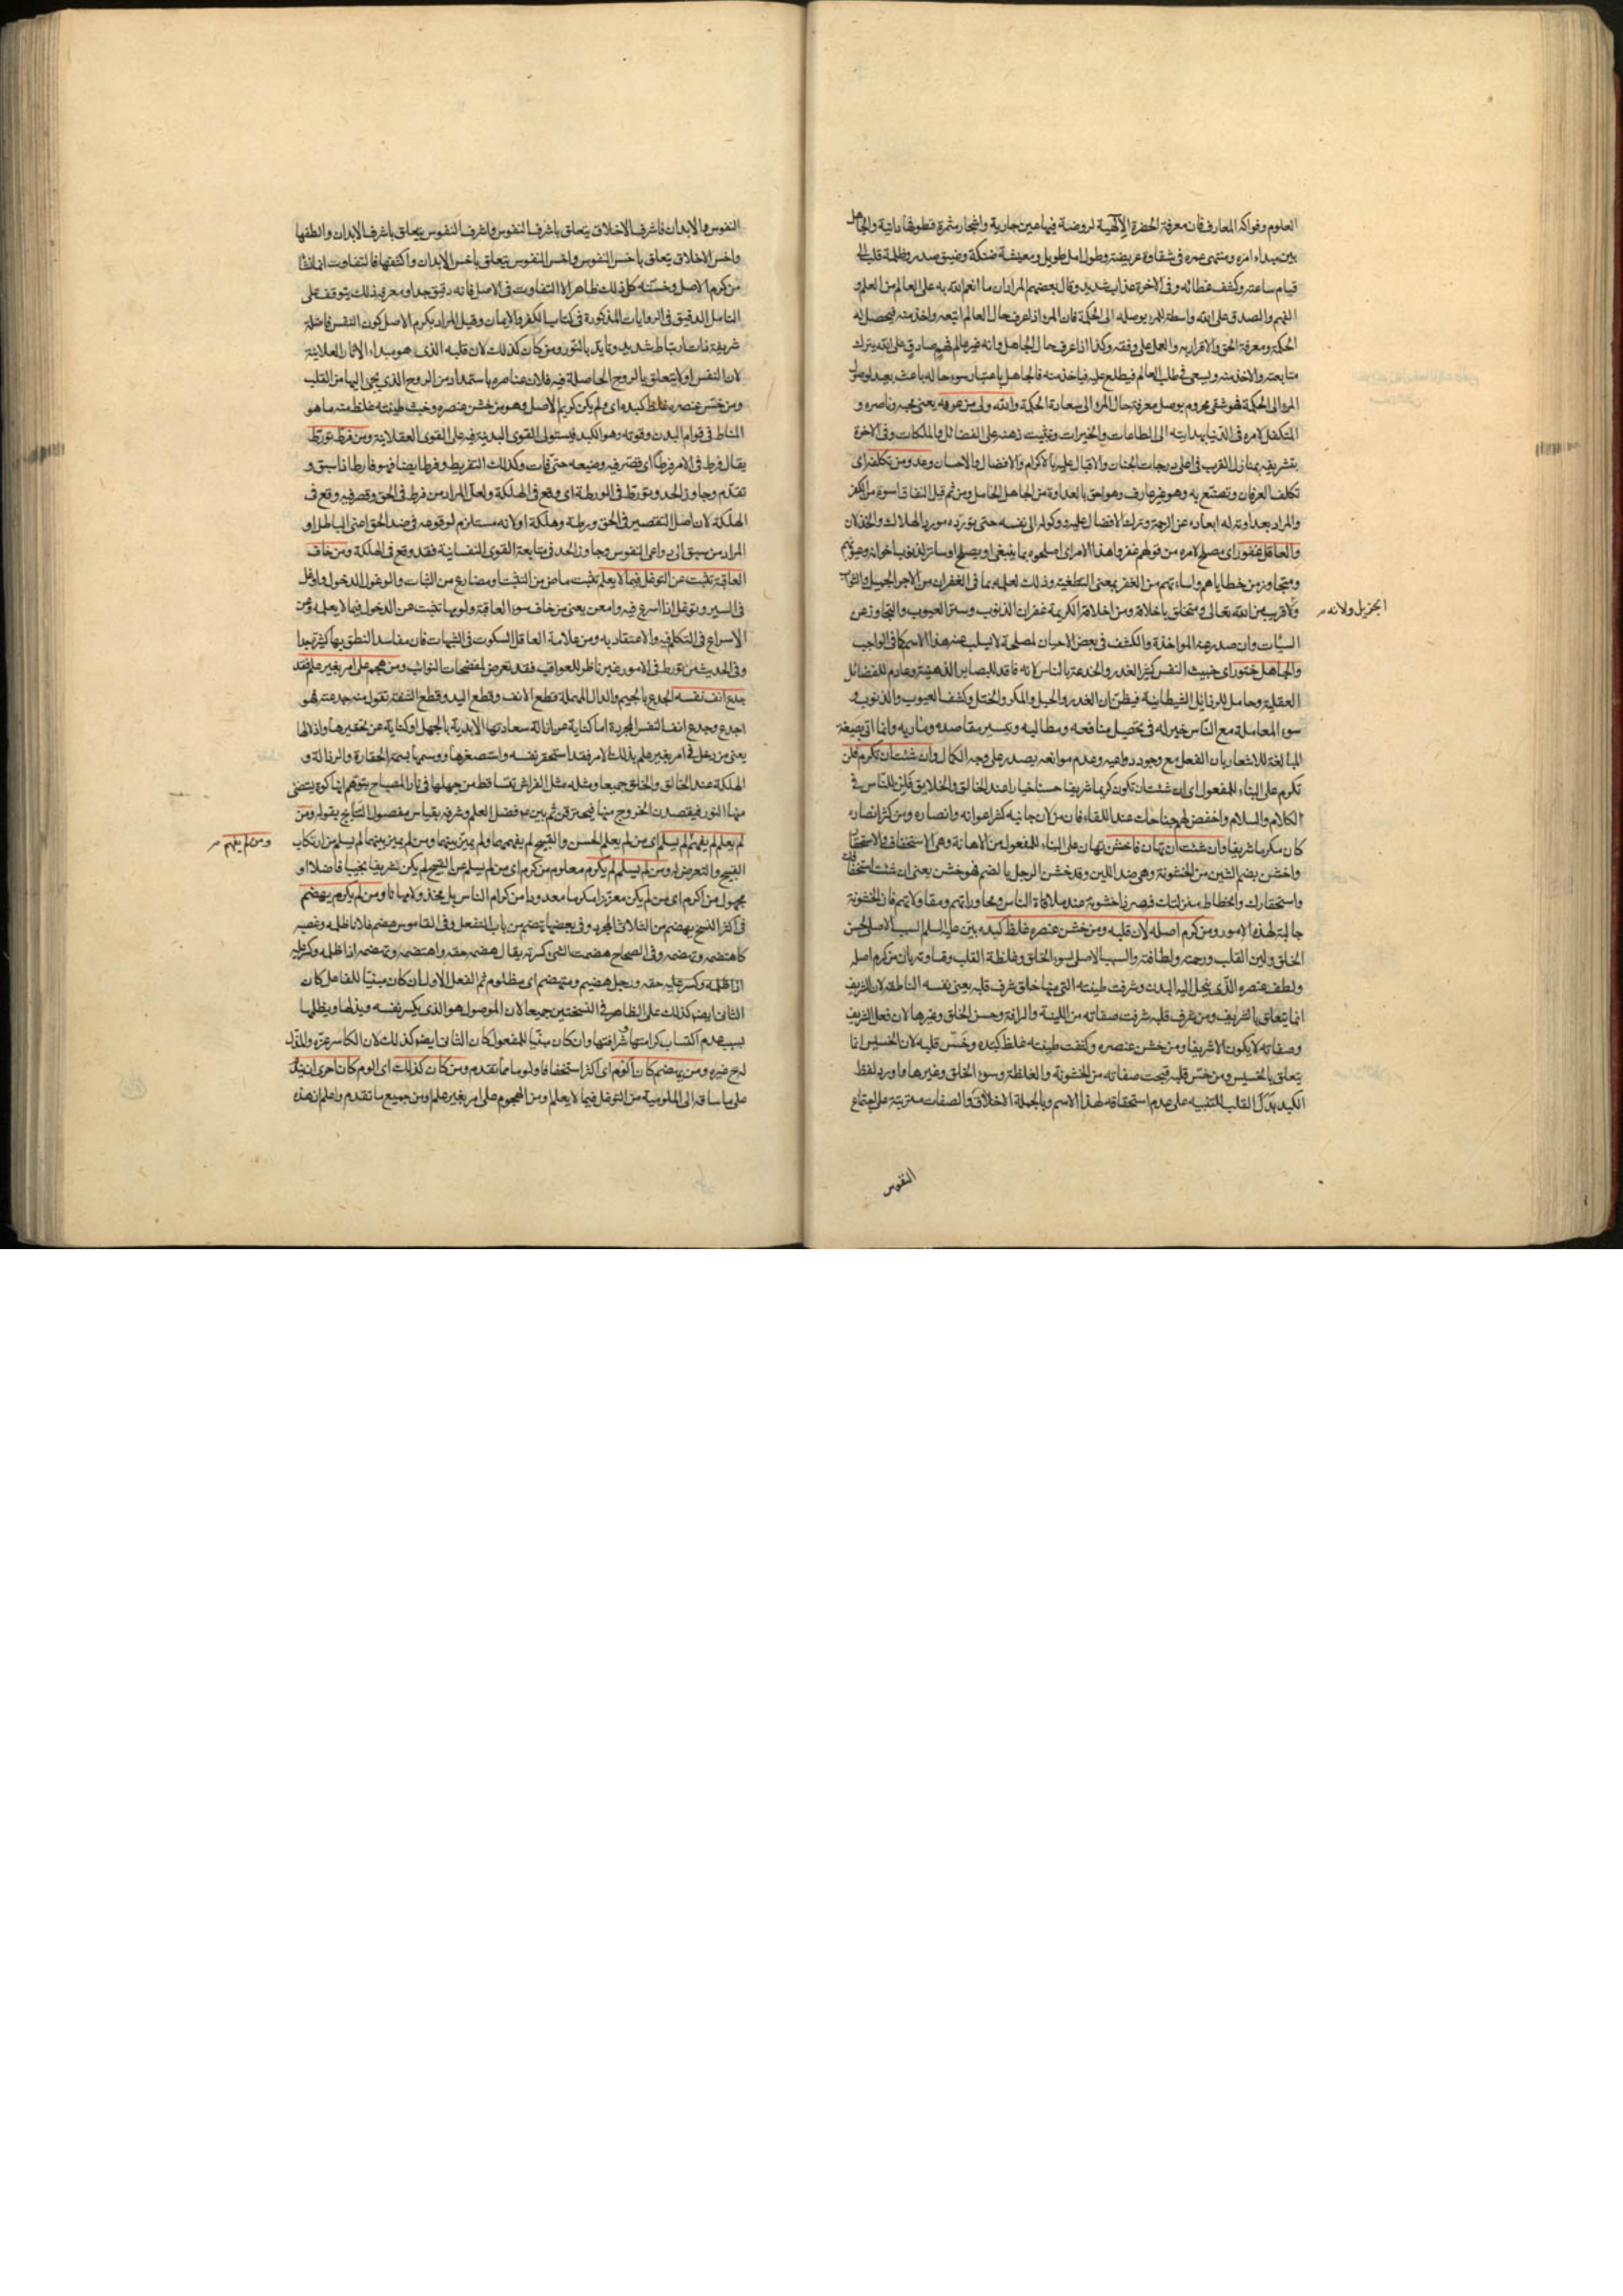 العلوم وفواكه المعارف فان معرفة الحضرة الالهية لروضة فيها عين جارية واشجار مثمرة قطوفها دانية والجاهل
بين مبداء امره ومنتهى عمره في شقاوة عريضة وطول امل طويل ومعيشة ضنكة وضيق صدر وظلمة قلب الى
قيام ساعته وكشف غطائه وفى الاخرة عذاب شديد وقال بعضهم المراد ان ما انعم الله به على العالم من العلم و
الفهم والصدق على الله واسطة للمرء يوصله الى الحكمة فان المرء اذا عرف حال العالم اتبعه واخذ منه فيحصل له
الحكمة ومعرفة الحق والاقرار به والعمل على وفقه وكذا اذا عرف حال الجاهل وانه غير عالم فهم صادق على الله يترك
متابعته والاخذ منه ويسعى في طلب العالم فيطلع عليه فياخذ منه فالجاهل باعتبار سوء حاله باعث بعيد لوصول
المرء الى الحكمة فهو شقى محروم يوصل معرفة حال المرء الى سعادة الحكمة والله ولى من عرفه يعنى محبه وناصره و
المتكفل لامره في الدنيا بهدايته الى الطاعات والخيرات وتثبيت ذهنه على الفضائل والملكات وفى الاخرة
بتشريفه بمنازل القرب في اعلى درجات الجنان والاقبال عليه بالاكرام والافضال والاحسان وعدو من تكلفه اى
تكلف العرفان وتصنع به وهو غير عارف وهو احق بالعداوة من الجاهل الخامل ومن ثم قيل النفاق اسوء من الكفر
والمراد بعداوته له ابعاده عن الرحمة وترك الافضال عليه ووكوله الى نفسه حتى يورده مورد الهلاك والخذلان
والعاقل غفور اى مصلح لامره من قولهم غفروا هذا الامر اى اصلحوه بما ينبغى ان يصلح او ساتر لذنوب اخوانه وعيوبهم
ومتجاوز من خطاياهم واساءتهم من الغفر بمعنى التغطية وذلك لعلمه بما فى الغفران من الاجر الجميل والثواب
الجزيل ولانه
ولا قريب من الله تعالى ومتخلق باخلاقه ومن اخلاقه الكريمة غفران الذنوب وستر العيوب والتجاوز عن
السيئات وان صدر عنه المواخذة والكشف في بعض الاحيان لمصلحة لا يسلب عنه هذا الاسم كما فى الواجب
والجاهل ختور اى خبيث النفس كثير الغدر والخدعة بالناس لانه فاقد للبصاير الذهنية وعادم للفضائل
العقلية وحامل للرذايل الشيطانية فيظن ان الغدر والحيل والمكر والختل وكشف العيوب والذنوب و
سوء المعاملة مع الناس خير له في تحصيل منافعه ومطالبه وتيسير مقاصده ومآربه وانما اتى بصيغة
المبالغة للاشعار بان الفعل مع وجود دواعيه وعدم موانعه يصدر على وجه الكمال وان شئت ان تكرم فلن
تكرم على البناء للمفعول اى ان شئت ان تكون كريما شريفا حسنا خيارا عند الخالق والخلايق فلن للناس في
الكلام والسلام واخفض لهم جناحك عند اللقاء فان من لان جانبه كثر اعوانه وانصاره ومن كثر انصاره
كان مكرما شريفا وان شئت ان تهان فاخشن تهان على البناء للمفعول من الاهانة وهى الاستخفاف والاستحقار
واخشن بضم الشين من الخشونة وهى ضد اللين وقد خشن الرجل بالضم فهو خشن يعنى ان شئت استخفافك
واستحقارك وانحطاط منزلتك فصر ذا خشونة عند ملاقاة الناس ومحاوراتهم ومقاولاتهم فان الخشونة
جالبة لهذه الامور ومن كرم اصله لان قلبه ومن خشن عنصره غلظ كبده بين عليه السلم السبب الاصلى لحسن
الخلق ولين القلب ورحمته ولطافته والسبب الاصلى لسوء الخلق وغلظة القلب وقساوته بان من كرم اصله
ولطف عنصره الذى ينحل اليه البدن وشرفت طينته التى منها خلق شرف قلبه يعنى نفسه الناطقة لان الشريف
انما يتعلق بالشريف ومن شرف قلبه شرفت صفاته من اللينة والرافة وحسن الخلق وغيرها لان فعل الشريف
وصفاته لا يكون الا شريفا ومن خشن عنصره وكثفت طينته غلظ كبده وخس قلبه لان الخسيس انما
يتعلق بالخسيس ومن خس قلبه قبحت صفاته من الخشونة والغلظة وسوء الخلق وغيرها واورد لفظ
الكبد بدل القلب للتنبيه على عدم استحقاقه لهذا الاسم وبالجملة الاخلاق والصفات مترتبة على اجتماع
النفوس
النفوس والابدان فاشرف الاخلاق يتعلق باشرف النفوس واشرف النفوس يتعلق باشرف الابدان والطفها
واخس الاخلاق يتعلق باخس النفوس واخس النفوس يتعلق باخس الابدان واكثفها فالتفاوت انما نشأ
من كرم الاصل وخسته كل ذلك ظاهر الا التفاوت فى الاصل فانه دقيق جدا ومعرفة ذلك يتوقف على
التامل الدقيق فى الروايات المذكورة فى كتاب الكفر والايمان وقيل المراد بكرم الاصل كون النفس فاضلة
شريفة ذات ارتباط شديد وتايد بالنور ومن كان كذلك لان قلبه الذى هو مبداء الاثار العلانية
لان النفس اولا يتعلق بالروح الحاصلة فيه فلان عناصره باستمداد من الروح الذى يجئ اليها من القلب
ومن خشن عنصره غلظ كبده اى ولم يكن كريم الاصل وهو من خشن عنصره وخبث طينته غلظت منه ما هو
المناط فى قوام البدن وقوته وهو الكبد فيستولى القوى البدنية فيه على القوى العقلانية ومن فرط تورط
يقال فرط فى الامر فرطا اى قصر فيه وضيعه حتى فات وكذلك التفريط وفرط ايضا فهو فارط اذا سبق و
تقدم وجاوز الحد وتورط فى الورطة اى وقع فى الهلكة ولعل المراد من فرط فى الحق وقصر فيه وقع فى
الهلكة لان اصل التقصير فى الحق ورطة وهلكة او لانه مستلزم لوقوعه فى ضد الحق اعنى الباطل او
المراد من سبق الى دواعى النفوس وجاوز الحد فى متابعة القوى النفسانية فقد وقع فى الهلكة ومن خاف
العاقبة تثبت عن التوغل فيما لا يعلم تثبت ماض من التثبت ومضارع من الثبات والوغول الدخول واوغل
فى السير وتوغل اذا اسرع فيه وامعن يعنى من خاف سوء العاقبة ولومها تثبت عن الدخول فيما لا يعلمه وعن
الاسراع فى التكلم فيه والاعتقاد به ومن علامة العاقل السكوت فى الشبهات فان مفاسد النطق بها كثيرة جدا
وفى الحديث من تورط فى الامور غير ناظر للعواقب فقد تعرض لمفضحات النوائب ومن هجم على امر بغير علم فقد
جدع انف نفسه الجدع بالجيم والدال المهملة قطع الانف وقطع اليد وقطع الشفة تقول منه جدعته فهو
اجدع وجدع انف النفس المجردة اما كناية عن ازالة سعادتها الابدية بالجهل او كناية عن تحقيرها واذلالها
يعنى من دخل فى امر بغير علم بذلك الامر فقد استحقر نفسه واستصغرها ووسمها بسمة الحقارة والرذالة و
الهلكة عند الخالق والخلق جميعا ومثله مثل الفراش تتساقط من جهلها فى نار المصباح بتوهم انها كوة يستضئ
منها النور فيقصدن الخروج منها فيحترقن ثم بين ع فضل العلم وشرفه بقياس مفصول النتايج بقوله ومن
لم يعلم لم يفهم لم يسلم اى من لم يعلم الحسن والقبيح لم يفهمها ولم يميز بينهما ومن لم يميز بينهما لم يسلم من ارتكاب
ومن لم يفهم
القبيح والتعرض له ومن لم يسلم لم يكرم معلوم من كرم اى من لم يسلم عن القبيح لم يكن شريفا نجيبا فاضلا او
مجهول من اكرم اى من لم يكن معززا مكرما معدودا من كرام الناس بل يخذلا ومهانا ومن لم يكرم يهضم
فى اكثر النسخ يهضم من الثلاثى المجرد وفى بعضها يتهضم من باب التفعل وفى القاموس هضم فلانا ظلمه وغصبه
كاهتضمه وتهضمه وفى الصحاح هضمت الشئ كسرته يقال هضمه حقه واهتضمه وتهضمه اذا ظلمه وكسر عليه
اذا ظلمه وكسر عليه حقه ورجل هضيم ومتهضم اى مظلوم ثم الفعل الاول ان كان مبنيا للفاعل كان
الثانى ايضا كذلك على الظاهر فى النسختين جميعا لان الموصول هو الذى يكسر نفسه ويذلها ويظلمها
بسبب عدم اكتساب كرامتها وشرافتها وان كان مبنيا للمفعول كان الثانى ايضا كذلك لان الكاسر عزه والمذل
له ح غيره ومن يهضم كان الوم اى اكثر استخفافا ولوما مما تقدم ومن كان كذلك اى الوم كان احرى ان يندم
على ما ساقه الى الملومية من التوغل فيما لا يعلم ومن الهجوم على امر بغير علم ومن جميع ما تقدم واعلم ان هذه